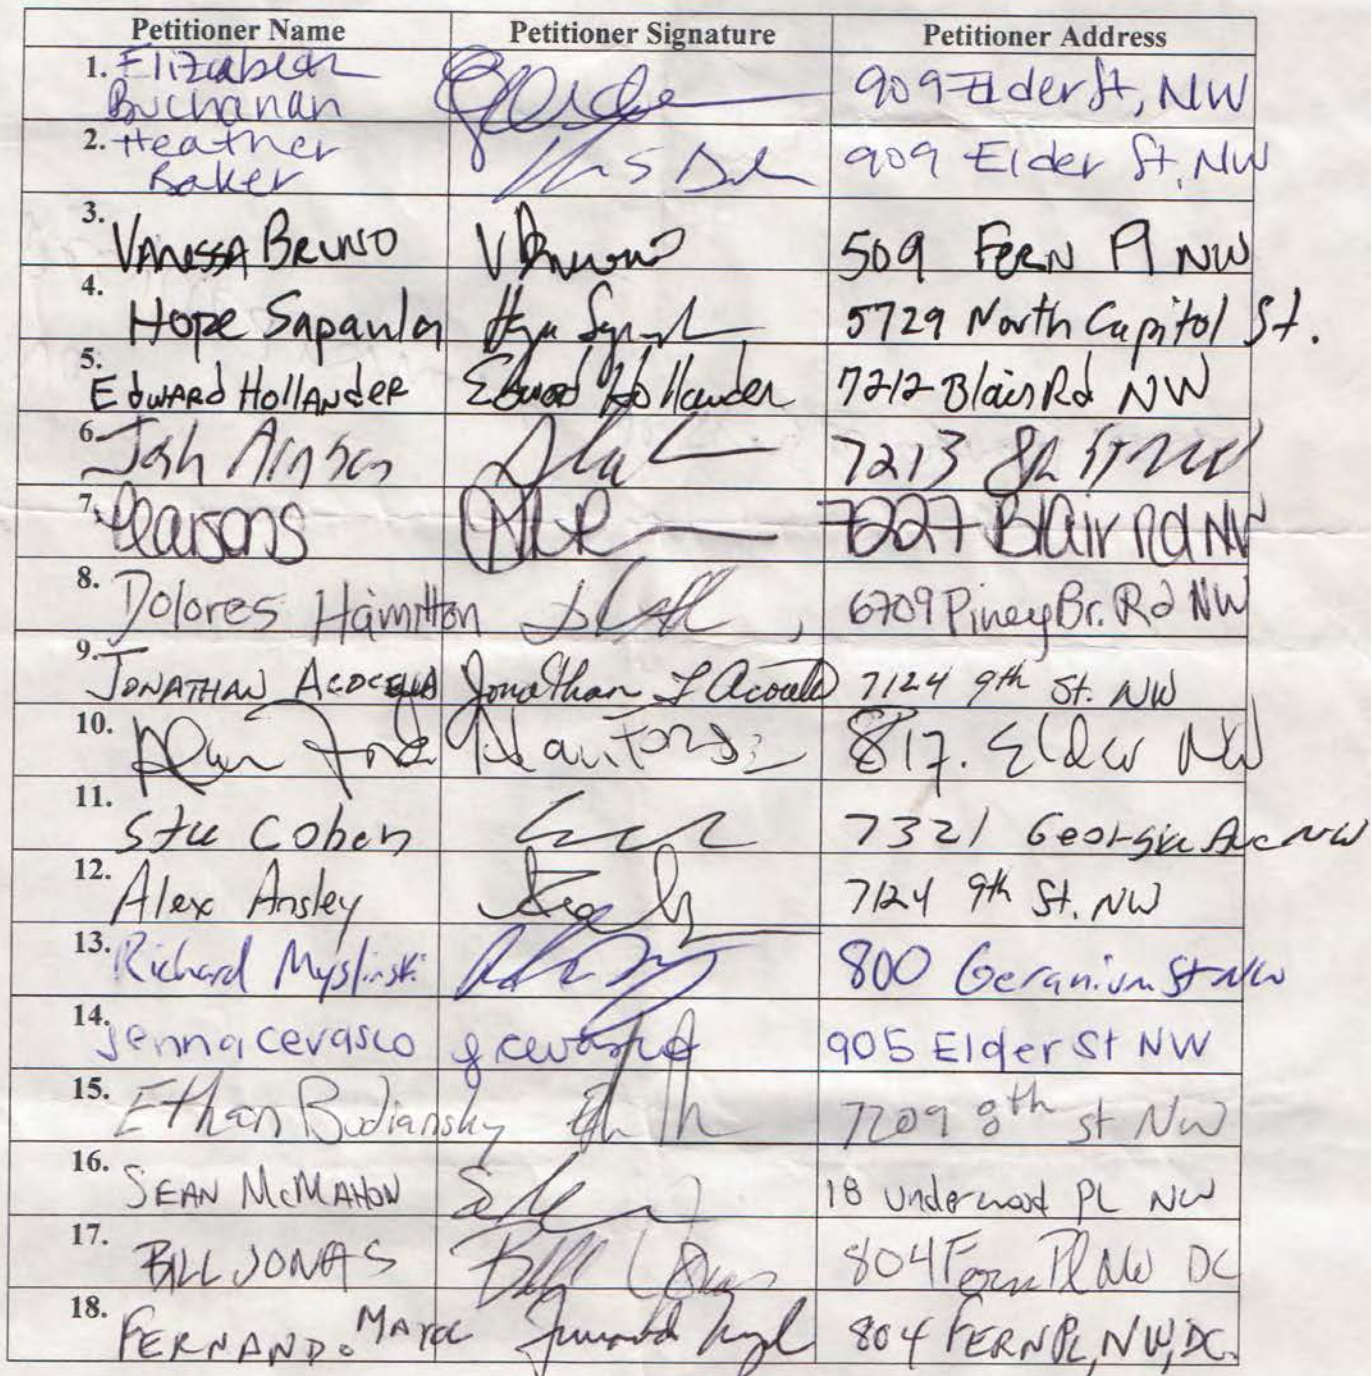 Petitioner Name Petitioner Signature Petitioner Address
1. Elizabeth 909 Elder St, NW
Buchanan
2. Heather 909 Elder St, NW
Baker
3. VANESSA BRUNO 509 FERN Pl NW
4. Hope 5729 North Capitol St.
5. EDWARD HOLLANDER Edward Hollander 7212 Blair Rd NW
6. Josh 7213 8th ST NW
7. Pearsons 7227 Blair Rd NW
8. Dolores Hamilton 6709 Piney Br. Rd NW
9. JONATHAN Jonathan 7124 9th St. NW
10. Ford 817. Elder NW
11. Stu Cohen 7321 Georgia Ave NW
12. Alex Ansley 7124 9th St. NW
13. Richard Myslinski 800 Geranium St NW
14. Jenna Cevasco J Cevasco 905 Elder St NW
15. Ethan Budiansky 7209 8th St NW
16. SEAN McMAHON 18 Underwood PL NW
17. BILL JONAS Bill Jonas 804 Fern Pl NW DC
18. FERNANDO 804 FERN PL, NW, DC.